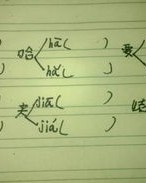 哈 hā ( )
hǎ ( )
夹 jiā ( )
jiá ( )